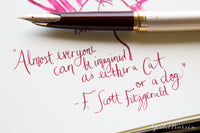 "Almost everyone
can be imagined
as either a Cat
or a dog."
- F. Scott Fitzgerald